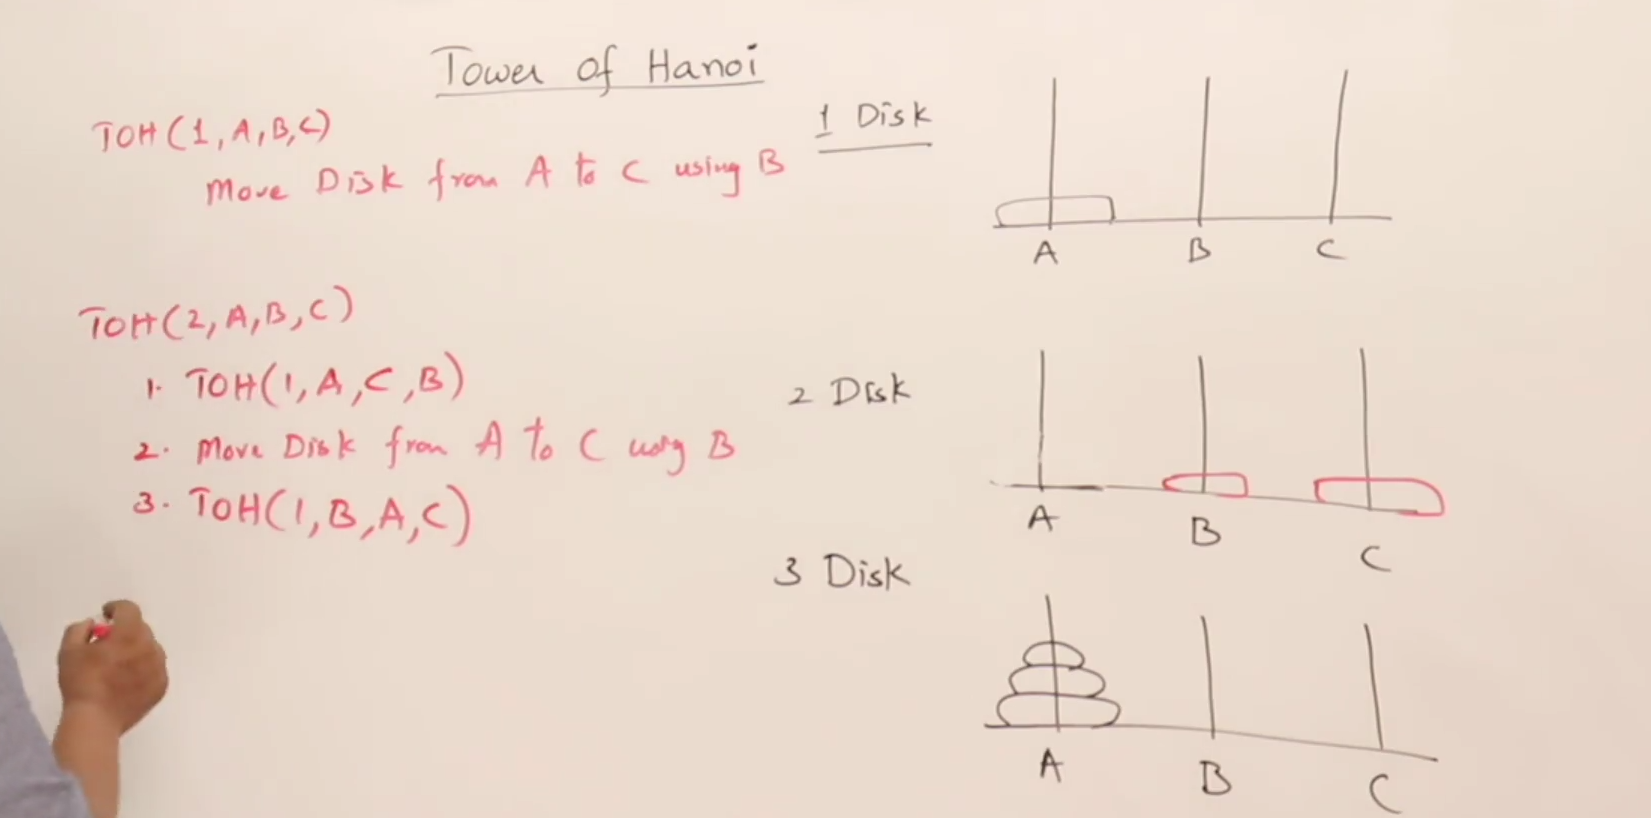 Tower of Hanoi
TOH(1,A,B,C)
Move Disk from A to C using B
1 Disk
A B C
TOH(2,A,B,C)
1. TOH(1,A,C,B)
2. Move Disk from A to C using B
3. TOH(1,B,A,C)
2 Disk
A B C
3 Disk
A B C